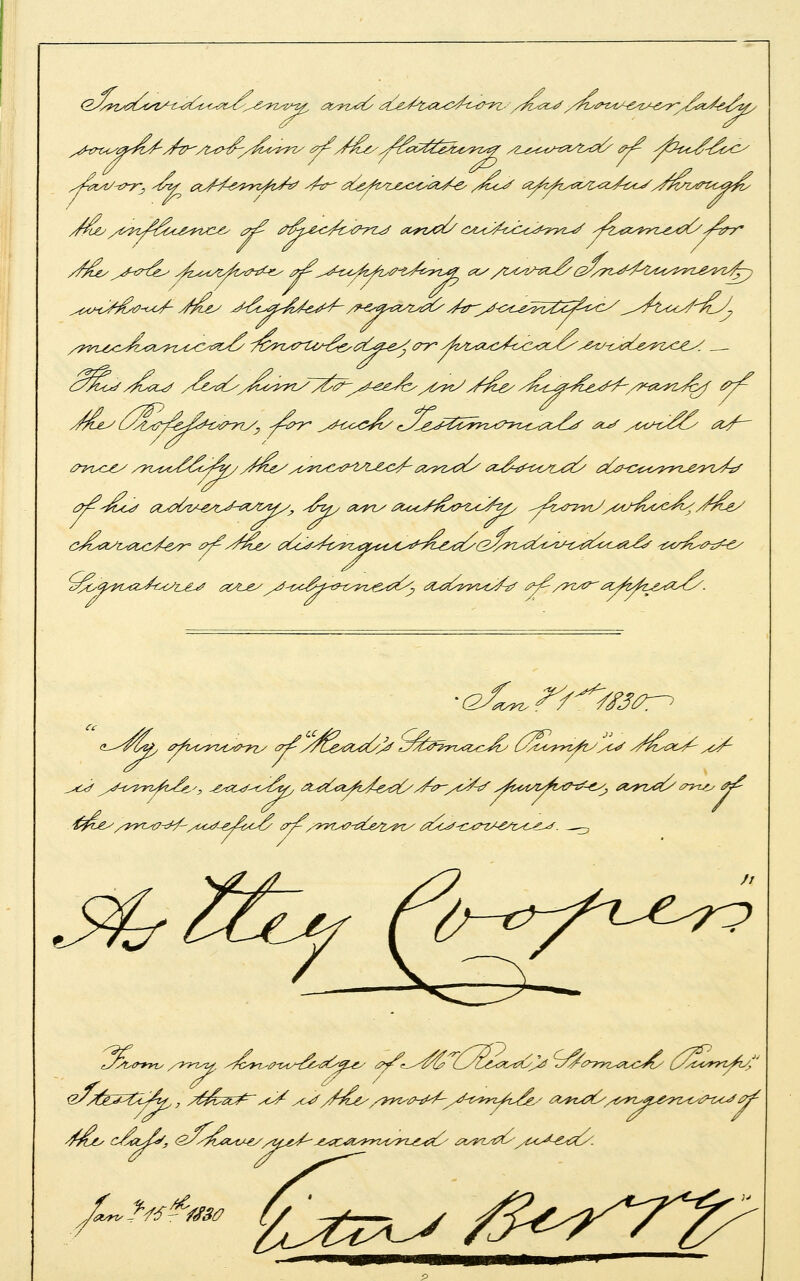 Individual envy and detraction has however lately
sought to rob him of the flattering reward of public
favor, by attempts to depreciate his apparatus through
the influence of objections and criticisms framed for
the sole purpose of supporting a rival Instrument,
without the slightest regard to scientific truth,
mechanical knowledge, or practical evidence. —
This has led him to seek in the highest ranks of
the Profeſsion, for such Testimonials as will at
once nullify the incorrect and absurd documents
of his adversary, by an authority from which, the
character of the distinguished Individuals whose
Signatures are subjoined, admits of no appeal.
Jan.y 1st 1830.
"My opinion of "Read's Stomach Pump" is that it
is simple, easily adapted to its purpose, and one of
the most useful of modern discoveries. —
Astley Cooper."
From my knowledge of Mr Read's Stomach Pump,"
I testify, that it is the most simple and ingenious of
the claſs, I have yet examined and used.
Jan.y 15th 1830 Titus Berry"